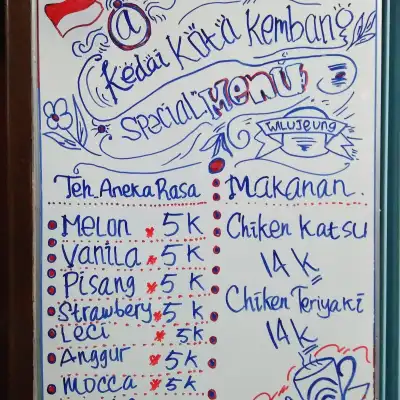 a
Kedai Kota Kembang
SPECIAL MENU
WILUJEUNG
Teh Aneka Rasa
Melon * 5K
Vanila * 5K
Pisang * 5K
Strawbery * 5K
Leci * 5K
Anggur * 5K
Mocca * 5K
Makanan.
Chiken Katsu
14K
Chiken Teriyaki
14K